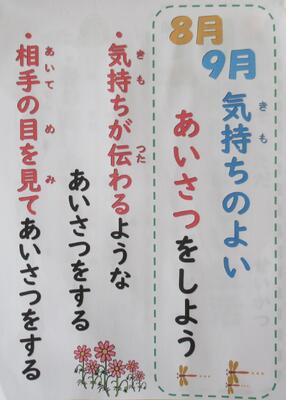 8月
9月
気持ちのよい
きも
あいさつをしよう
・気持ちが伝わるような
きも
つた
あいさつをする
・相手の目を見てあいさつをする
あいて
め
み